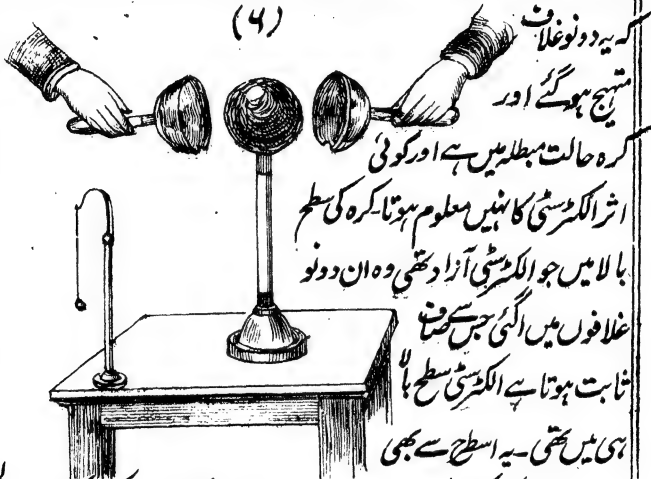 (۶)
کہ یہ دونو غلاف
متہیج ہو گئے اور
کرہ حالت مبطلہ میں ہے اور کوئی
اثر الکٹرسٹی کا نہیں معلوم ہوتا۔ کرہ کی سطح
بالا میں جو الکٹرسٹی آزاد تھی وہ ان دونو
غلافوں میں اگئی جس سے صاف
ثابت ہوتا ہے الکٹرسٹی سطح بالا
ہی میں تھی۔ یہ اسطرح سے بھی